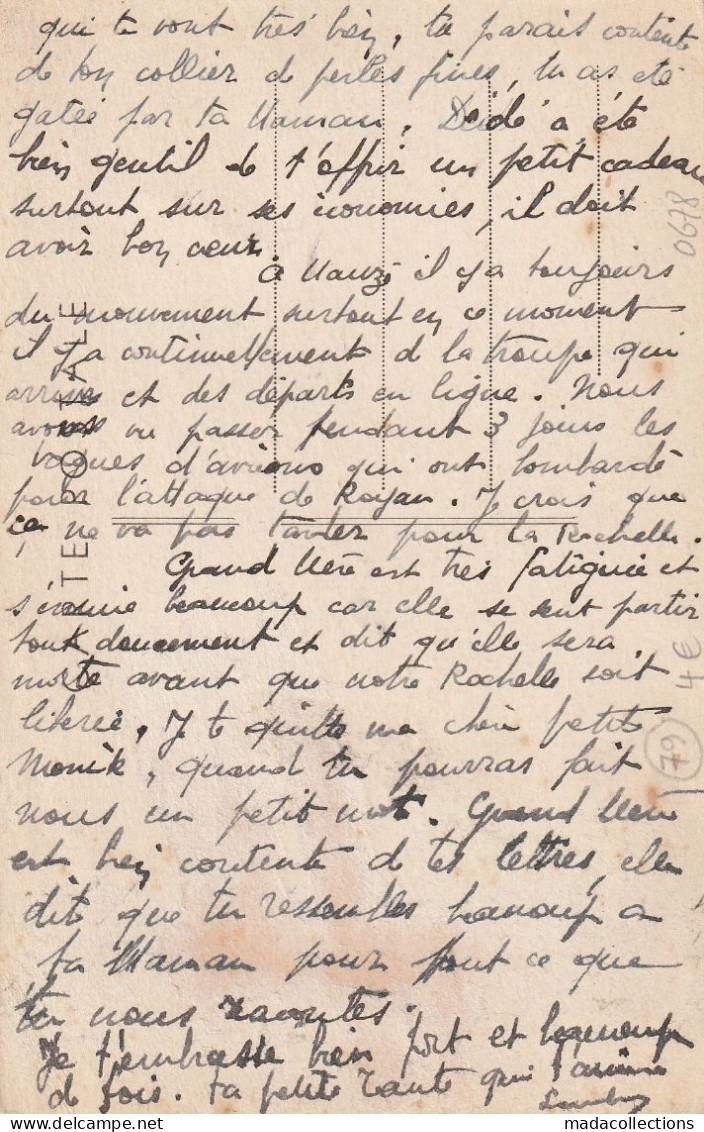 qui te vont très bien, tu parais contente
de ton collier de perles fines, tu as été
gatée par ta Maman. Dédé a été
bien gentil de t'offrir un petit cadeau
surtout sur ses économies, il doit
avoir bon cœur.
à Mauzé il y a toujours
du mouvement surtout en ce moment
il y a continuellement de la troupe qui
arrive et des départs en ligne. Nous
avons vu passer pendant 3 jours les
vagues d'avions qui ont bombardé
pour l'attaque de Royan. Je crois que
ça ne va pas tarder pour la Rochelle.
Grand Mère est très fatiguée et
s'ennuie beaucoup car elle se sent partir
tout doucement et dit qu'elle sera
morte avant que notre Rochelle soit
liberée. Je te quitte ma chère petite
Monik, quand tu pourras fait
nous un petit mot. Grand Mère
est bien contente de tes lettres, elle
dit que tu ressembles beaucoup a
ta Maman pour tout ce que
tu nous racontes.
Je t'embrasse bien fort et beaucoup
de fois. ta petite Tante qui t'aime
0678
4€
79
madacollections.com